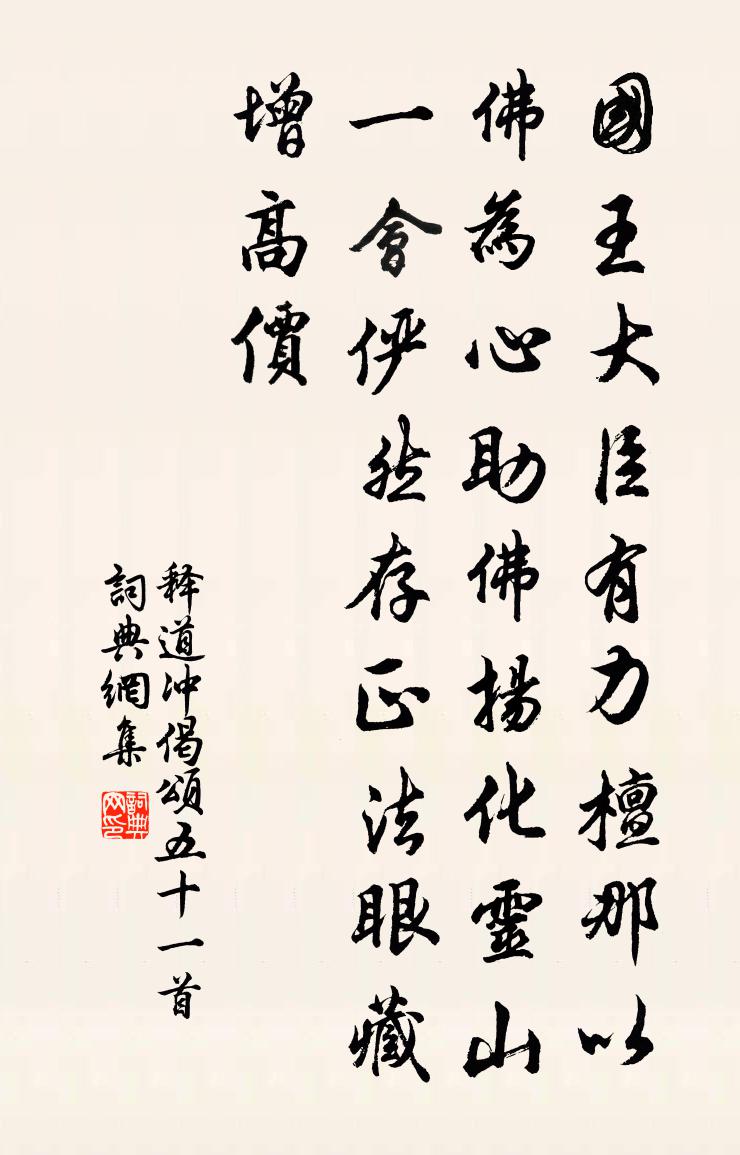 國王大臣有力檀那以
佛為心助佛揚化靈山
一會儼然存正法眼藏
增高價
释道冲偈頌五十一首
詞典網集
詞典网印